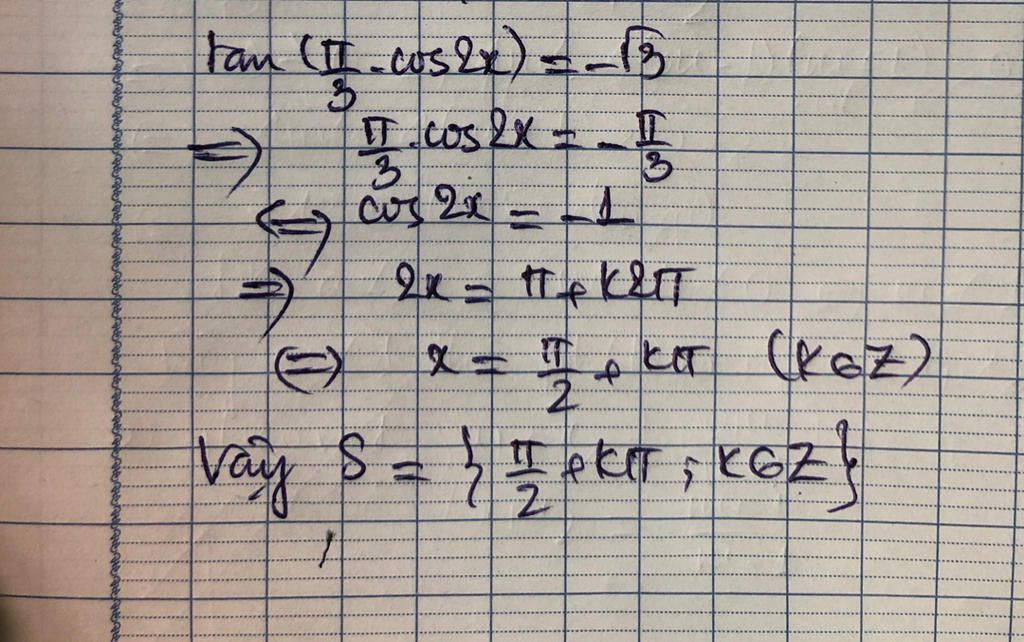 tan (π/3 . cos2x) = -√3
⇒ π/3 . cos 2x = -π/3
⇔ cos 2x = -1
⇒ 2x = π + k2π
⇔ x = π/2 + kπ (k∈Z)
Vậy S = {π/2 + kπ ; k∈Z}